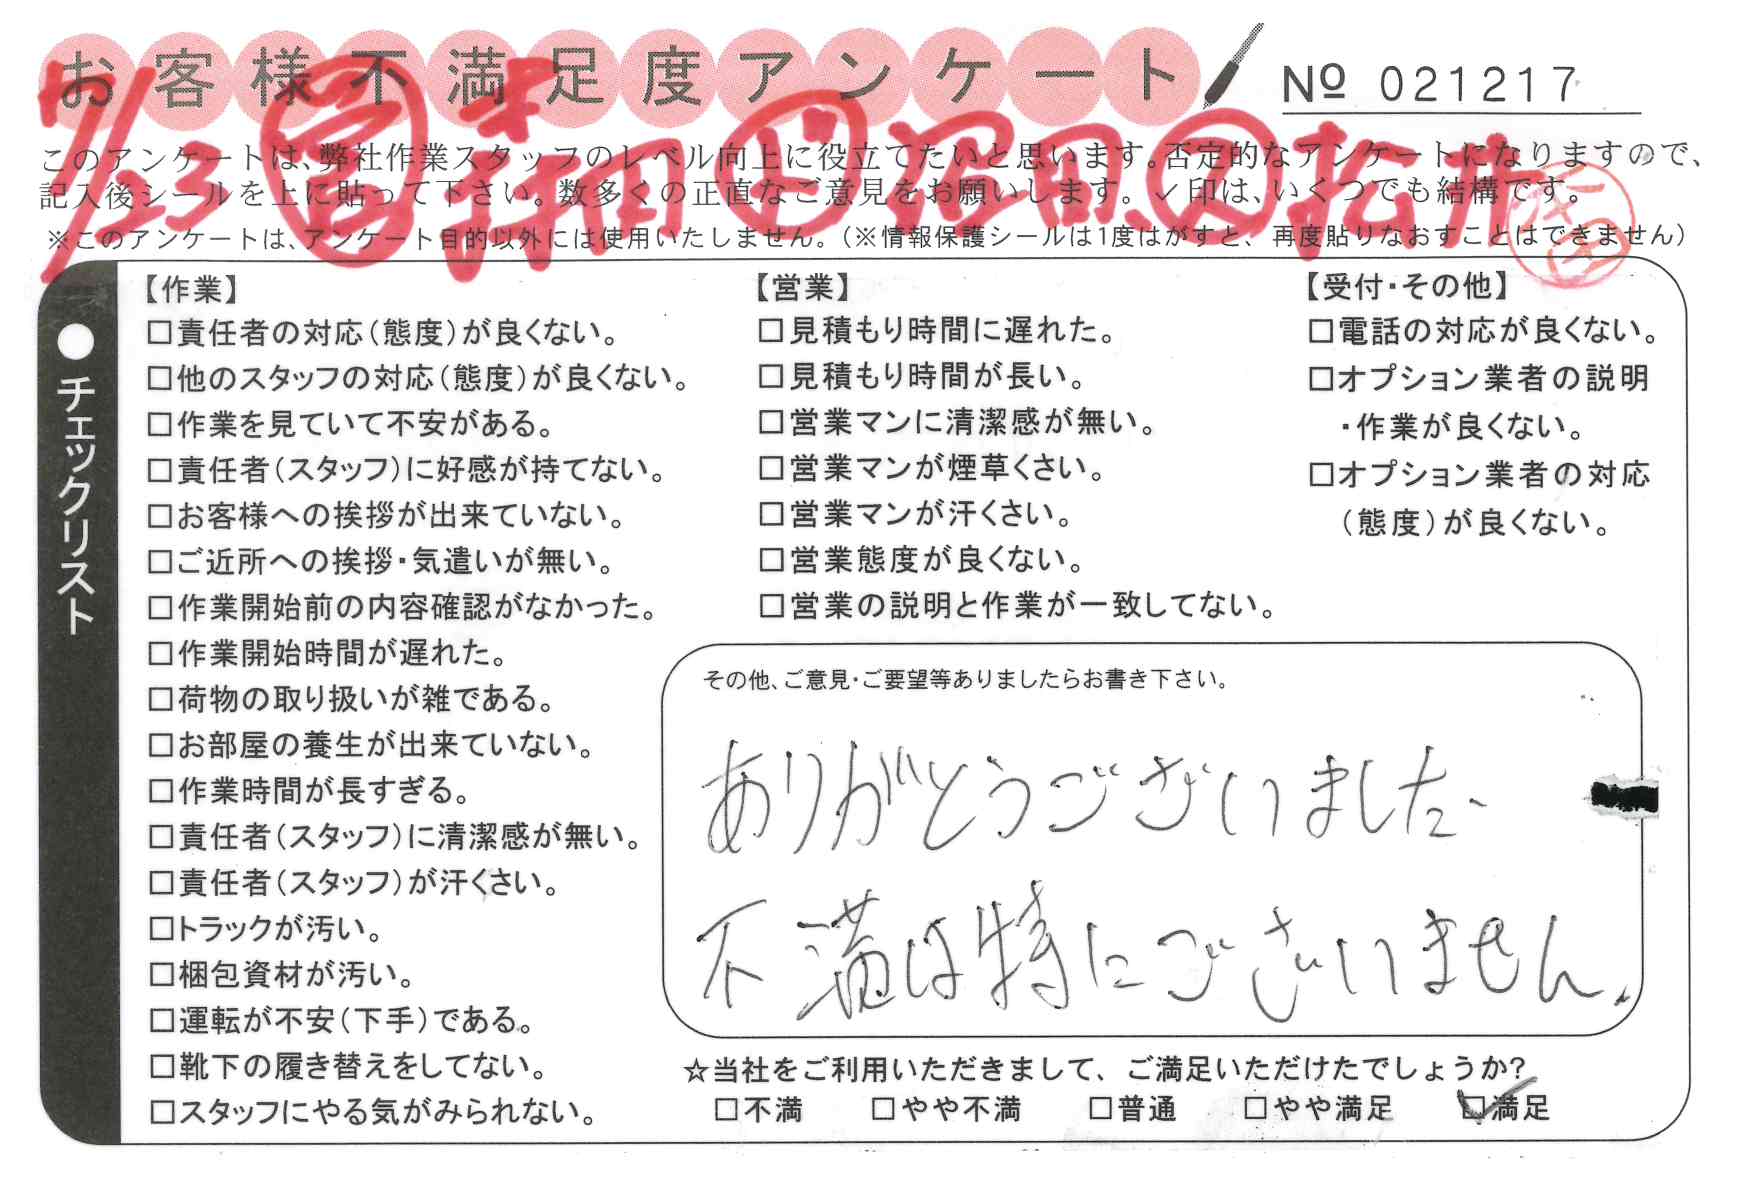 お客様不満足度アンケート
№ 021217
7/23 営 井田 ド 沼田、 ス 松井
このアンケートは、弊社作業スタッフのレベル向上に役立てたいと思います。否定的なアンケートになりますので、
記入後シールを上に貼って下さい。数多くの正直なご意見をお願いします。✓印は、いくつでも結構です。
※このアンケートは、アンケート目的以外には使用いたしません。(※情報保護シールは1度はがすと、再度貼りなおすことはできません)
●チェックリスト
【作業】
□責任者の対応(態度)が良くない。
□他のスタッフの対応(態度)が良くない。
□作業を見ていて不安がある。
□責任者(スタッフ)に好感が持てない。
□お客様への挨拶が出来ていない。
□ご近所への挨拶・気遣いが無い。
□作業開始前の内容確認がなかった。
□作業開始時間が遅れた。
□荷物の取り扱いが雑である。
□お部屋の養生が出来ていない。
□作業時間が長すぎる。
□責任者(スタッフ)に清潔感が無い。
□責任者(スタッフ)が汗くさい。
□トラックが汚い。
□梱包資材が汚い。
□運転が不安(下手)である。
□靴下の履き替えをしてない。
□スタッフにやる気がみられない。
【営業】
□見積もり時間に遅れた。
□見積もり時間が長い。
□営業マンに清潔感が無い。
□営業マンが煙草くさい。
□営業マンが汗くさい。
□営業態度が良くない。
□営業の説明と作業が一致してない。
【受付・その他】
□電話の対応が良くない。
□オプション業者の説明
・作業が良くない。
□オプション業者の対応
(態度)が良くない。
その他、ご意見・ご要望等ありましたらお書き下さい。
ありがとうございました。
不満は特にございません。
☆当社をご利用いただきまして、ご満足いただけたでしょうか?
□不満 □やや不満 □普通 □やや満足 ☑満足